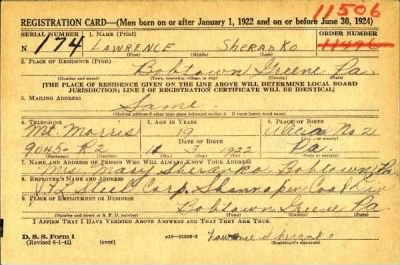 11506
REGISTRATION CARD—(Men born on or after January 1, 1922 and on or before June 30, 1924)
SERIAL NUMBER 1. NAME (Print) ORDER NUMBER
N 174 LAWRENCE SHERANKO 11496
(First) (Middle) (Last)
2. PLACE OF RESIDENCE (Print)
Bobtown Greene Pa.
(Number and street) (Town, township, village, or city) (County) (State)
[THE PLACE OF RESIDENCE GIVEN ON THE LINE ABOVE WILL DETERMINE LOCAL BOARD
JURISDICTION; LINE 2 OF REGISTRATION CERTIFICATE WILL BE IDENTICAL]
3. MAILING ADDRESS
Same
4. TELEPHONE 5. AGE IN YEARS 6. PLACE OF BIRTH
Mt. Morris 19 Alicia No. 2
DATE OF BIRTH
9045-R2 1922 Pa.
7. NAME AND ADDRESS OF PERSON WHO WILL ALWAYS KNOW YOUR ADDRESS
Mrs. Mary Sheranko Bobtown Pa
8. EMPLOYER'S NAME AND ADDRESS
J & L Steel Corp. Shannopin Coal
9. PLACE OF EMPLOYMENT OR BUSINESS
Bobtown Greene Pa
(Number and street or R. F. D. number) (Town) (County) (State)
I AFFIRM THAT I HAVE VERIFIED ABOVE ANSWERS AND THAT THEY ARE TRUE.
D. S. S. Form 1
(Revised 6-1-42) Lawrence Sheranko
(Registrant's signature)